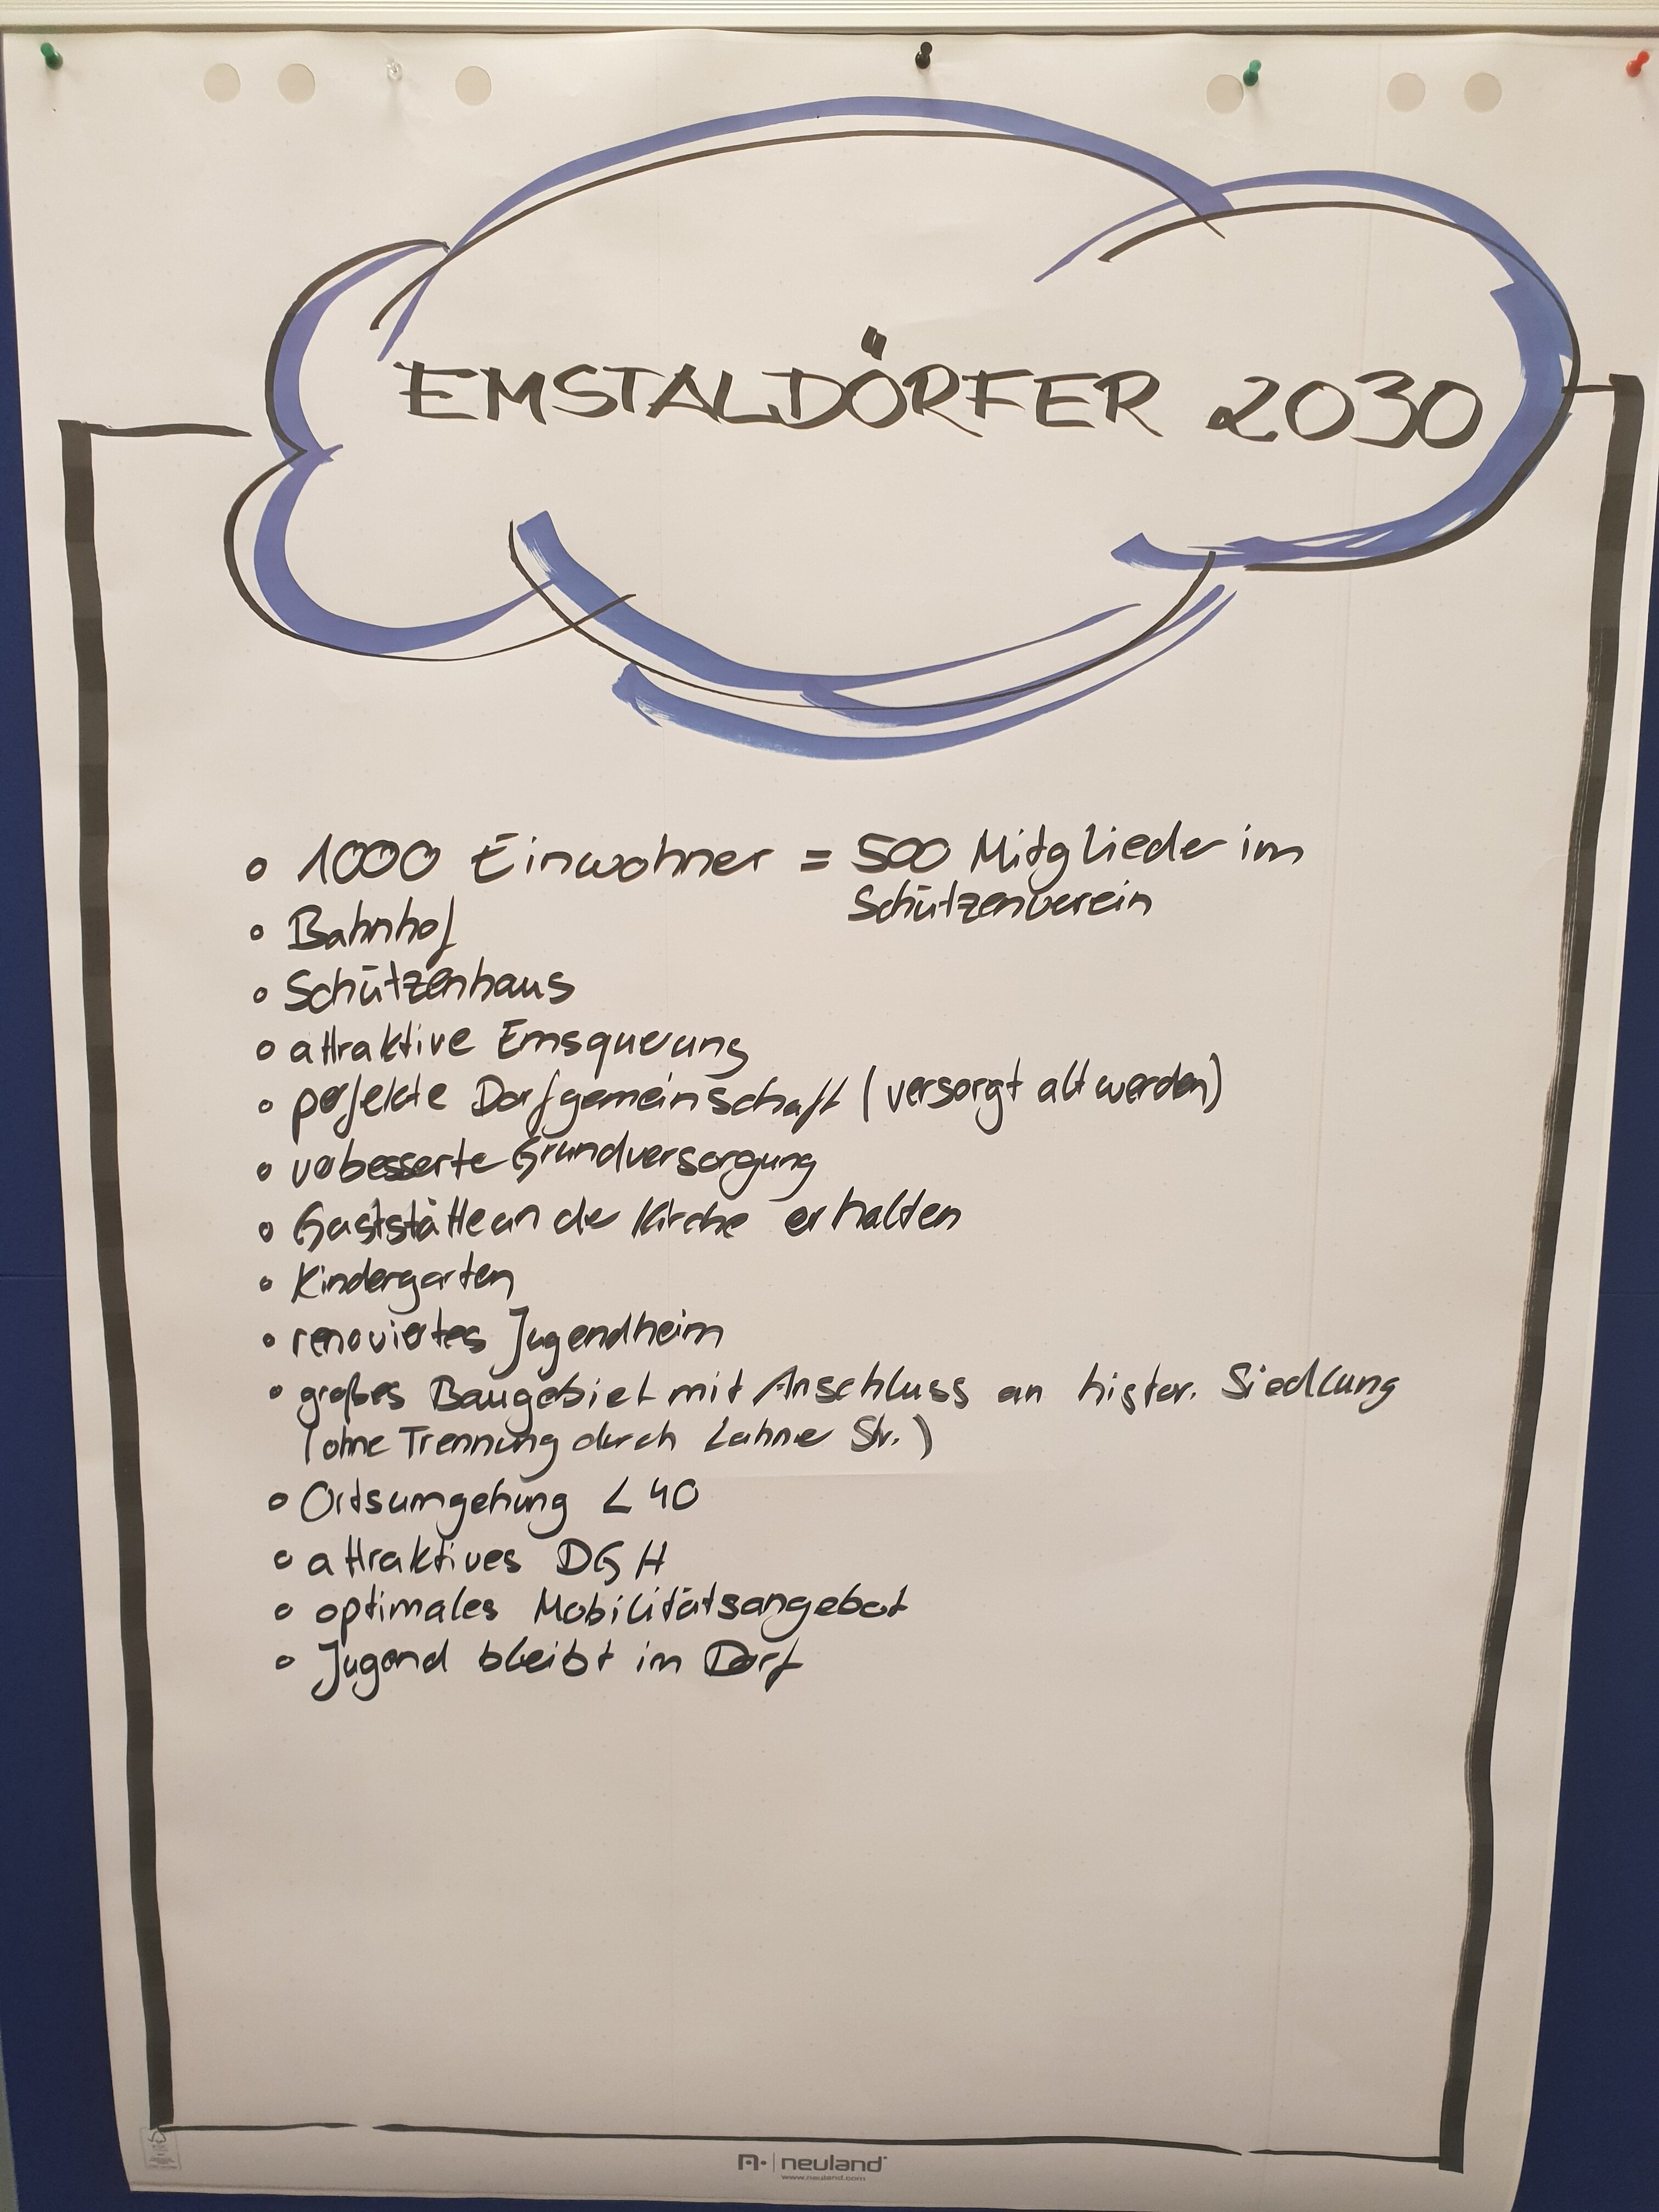 EMSTALDÖRFER 2030
o 1000 Einwohner = 500 Mitglieder im
Schützenverein
o Bahnhof
o Schützenhaus
o attraktive Emsquerung
o perfekte Dorfgemeinschaft (versorgt alt werden)
o verbesserte Grundversorgung
o Gaststätte an der Kirche erhalten
o Kindergarten
o renoviertes Jugendheim
o großes Baugebiet mit Anschluss an histor. Siedlung
(ohne Trennung durch Lahner Str.)
o Ortsumgehung L 40
o attraktives DGH
o optimales Mobilitätsangebot
o Jugend bleibt im Dorf
neuland
www.neuland.com